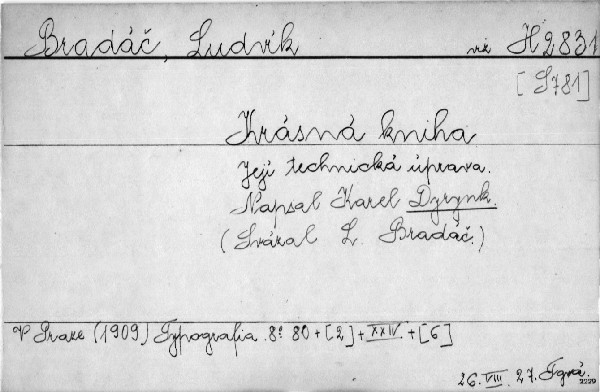 Bradáč, Ludvík viz H 2831
[S781]
Krásná kniha
Její technická úprava.
Napsal Karel Dyrynk.
(Svázal L. Bradáč.)
V Praze (1909) Typografia. 8° 80 + [2] + XXIV + [6]
26. VIII. 27.